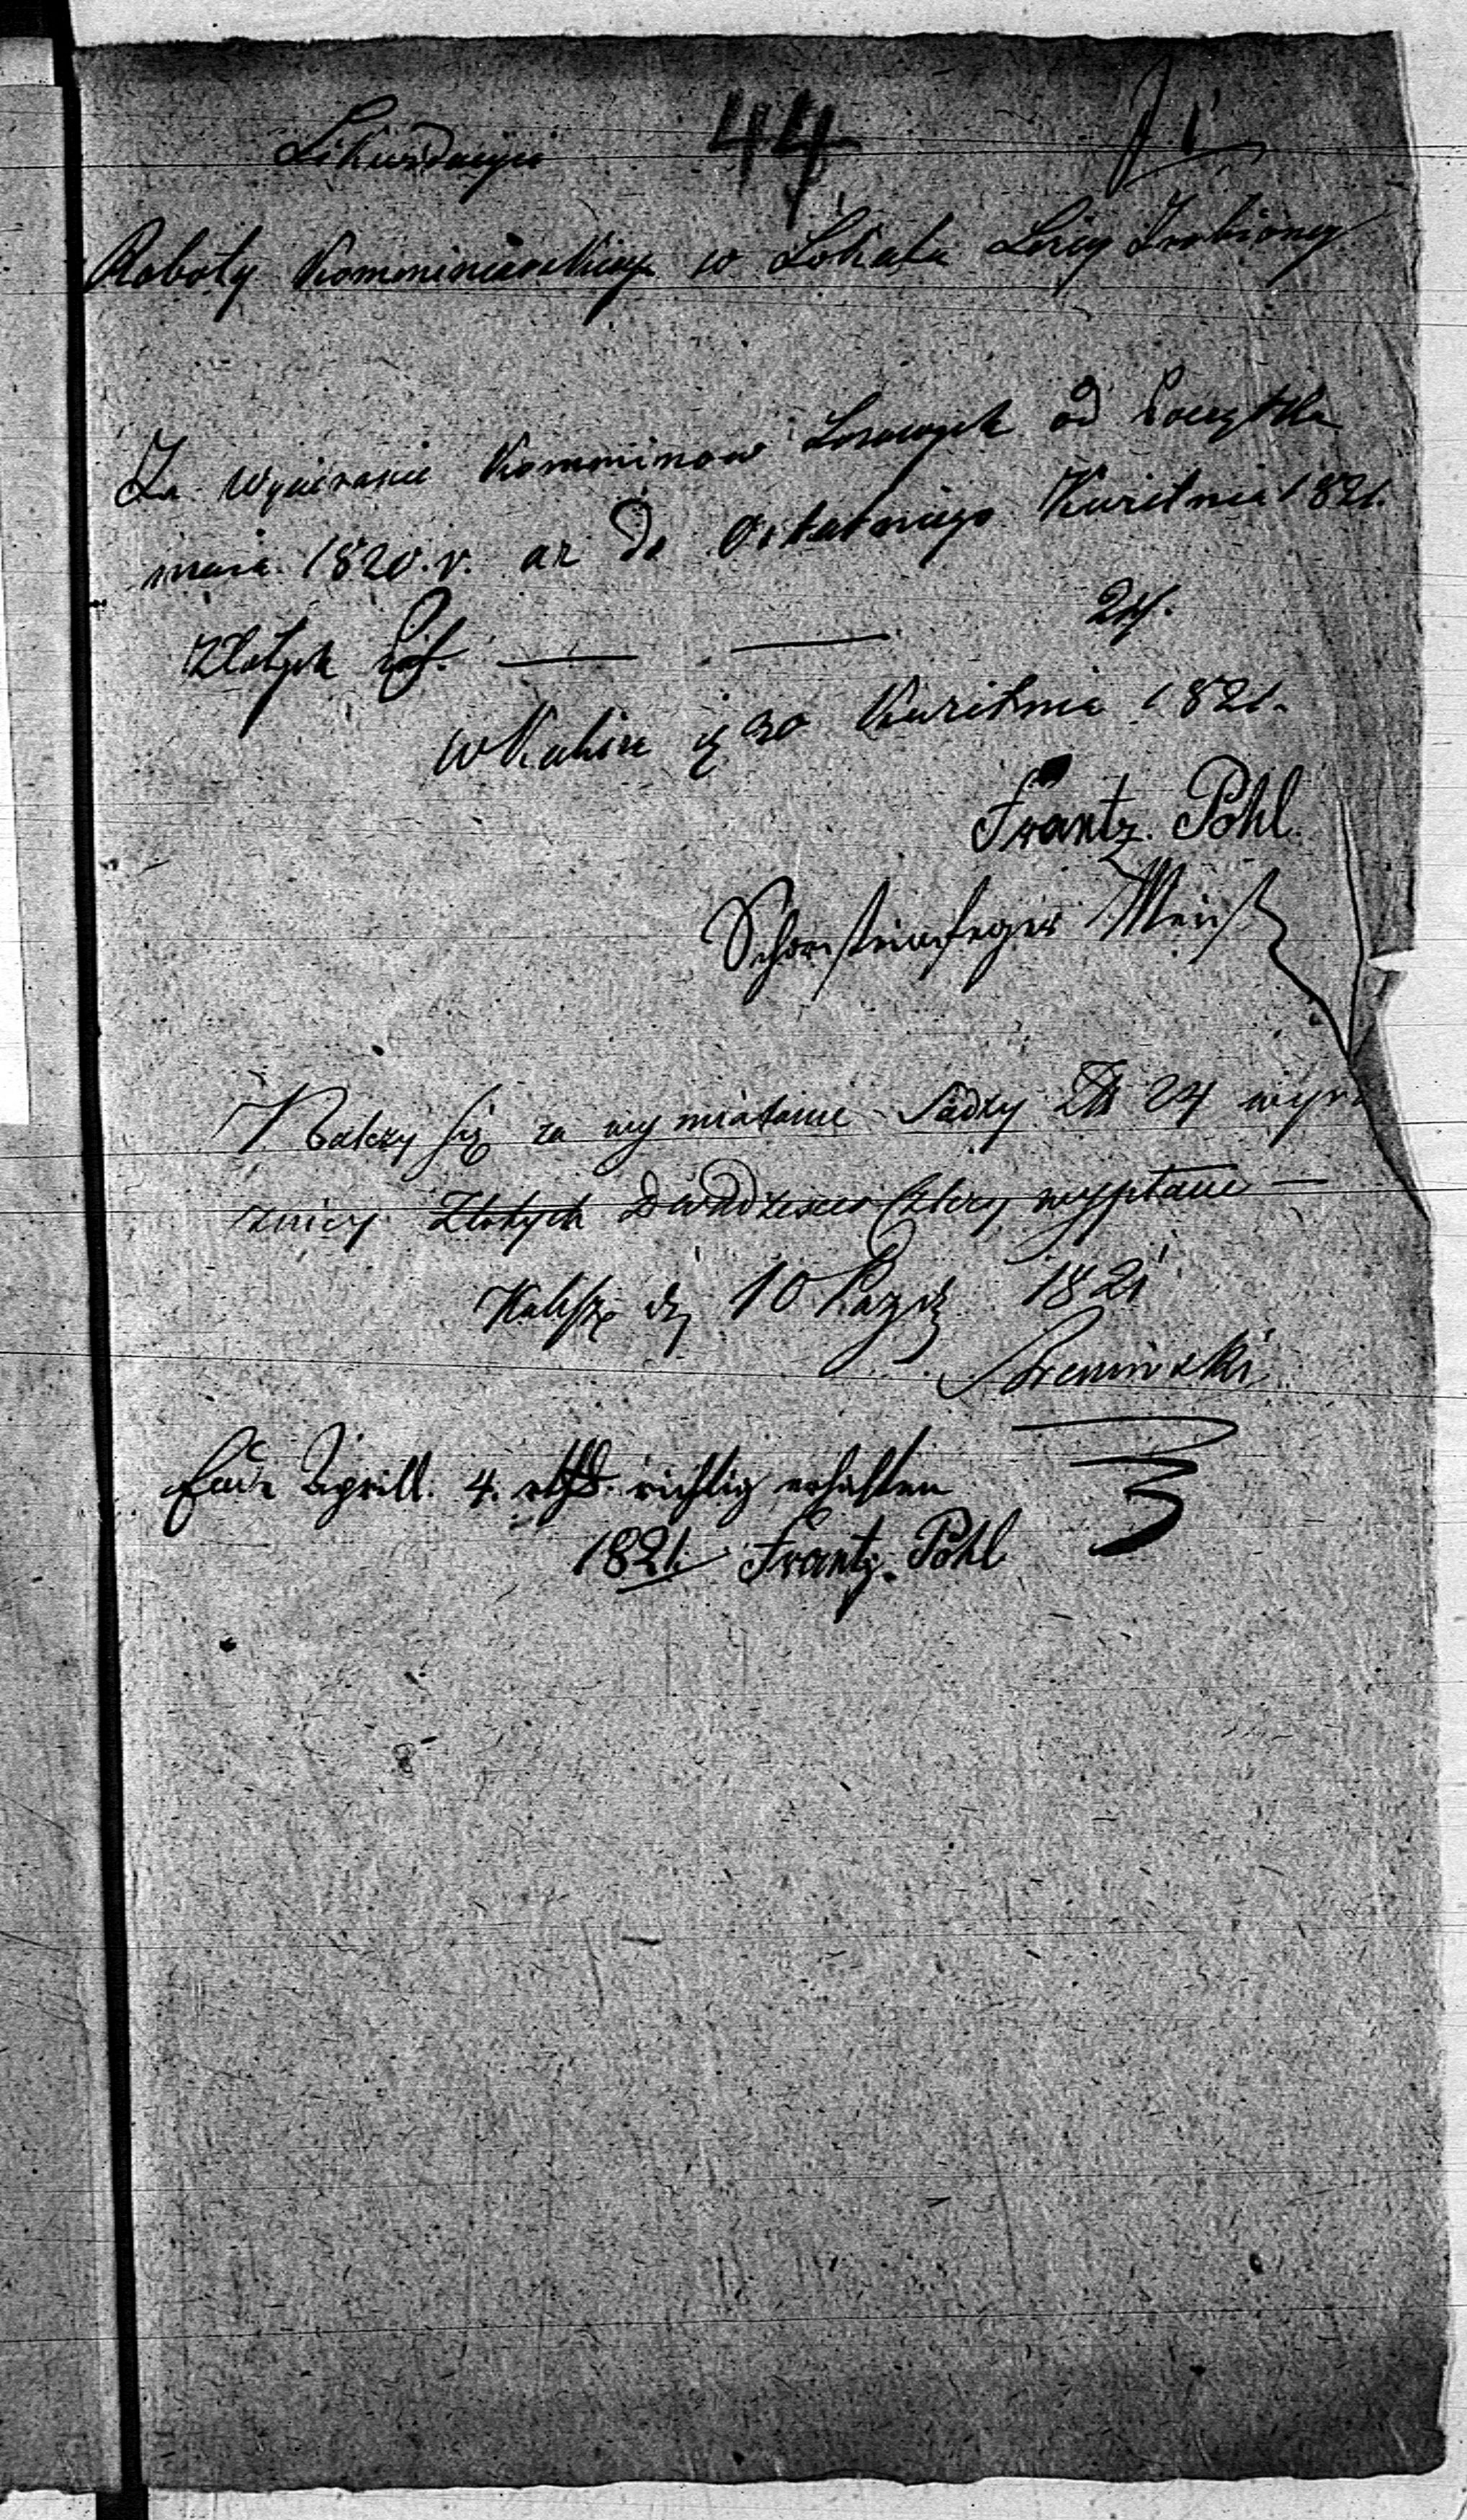 Likwidacyia 44
Roboty Kommeniarskiey w Lokalu Loży Zrobioney
Za Wycieranie Komminow Lożowych od Początku
maia 1820. r. az do Ostatniego Kwietnia 1821.
Złotych Pol. — — 24.
w Kaliszu d 30 Kwietnia 1821.
Frantz. Pohl.
Schornsteinfeger Meist
Należy się za wymiatanie Sadzy Zł 24 wyra
zniey Złotych Dwadziescia Cztery wypłanie —
Kalisz dn 10 Pazdz 1821
Ende Aprill. 4. rthl. richtig erhalten
1821. Frantz. Pohl